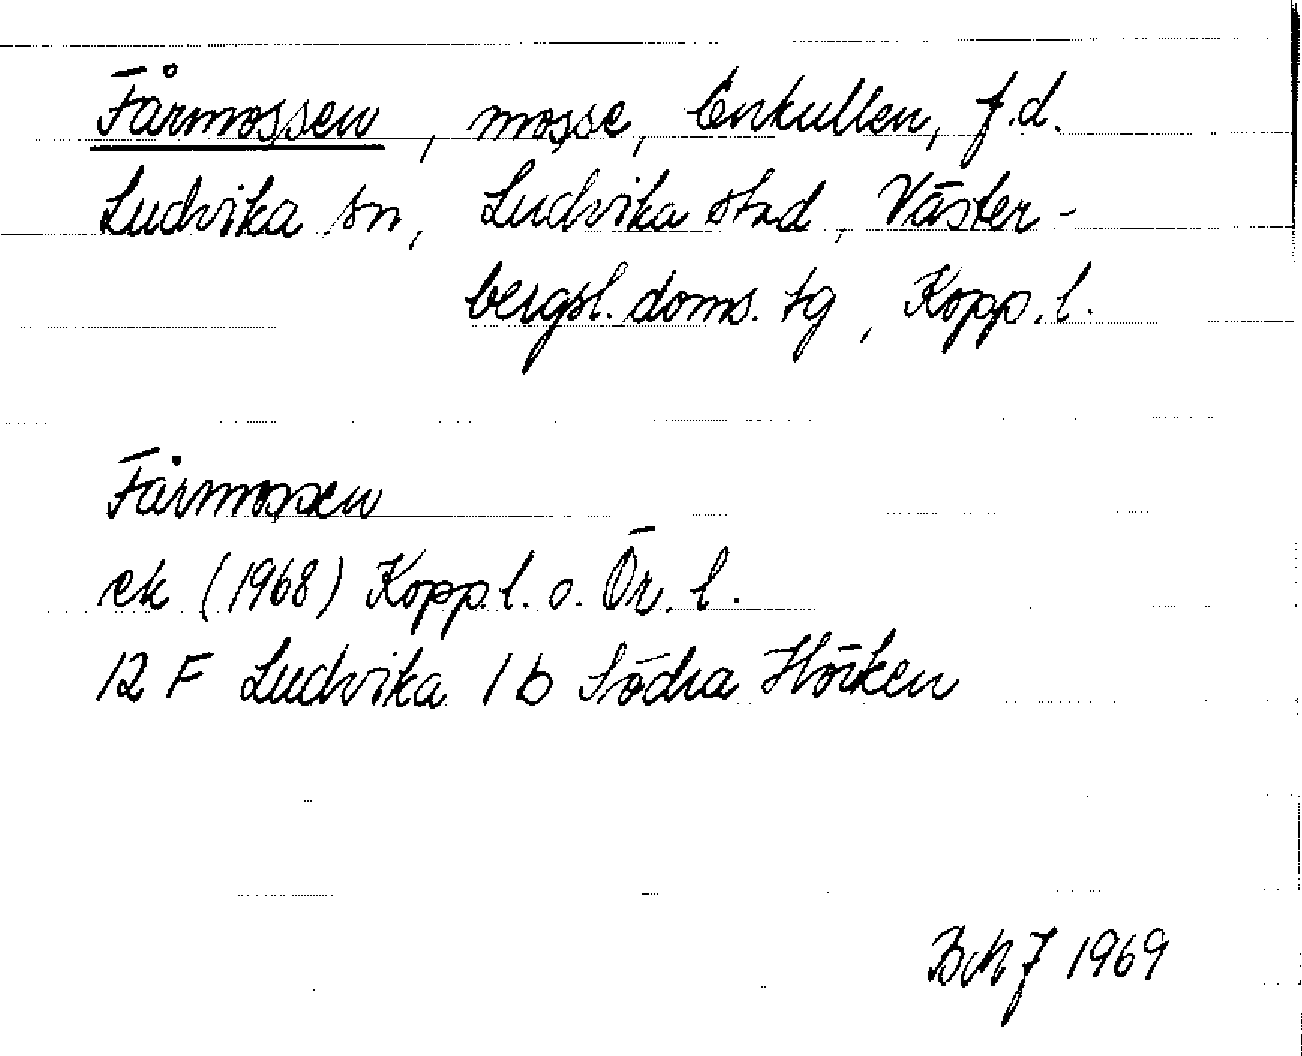 Fårmossen, mosse, Enkullen, f.d.
Ludvika sn, Ludvika stad, Väster-
bergsl. doms. tg, Kopp. l.
Fårmossen
ek (1968) Kopp. l. o. Ör. l.
12 F Ludvika 1 b Södra Hörken
1969